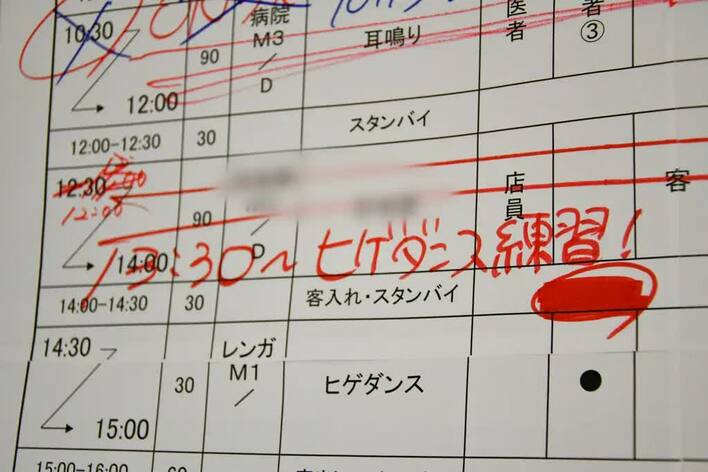 10:30
病院
90
M3
／
D
耳鳴り
医者
者
③
12:00
12:00-12:30
30
スタンバイ
12:30
12:00
90
D
店員
客
14:00
13:30〜ヒゲダンス練習!
14:00-14:30
30
客入れ・スタンバイ
14:30
30
レンガ
M1
／
ヒゲダンス
●
15:00
15:00-16:00